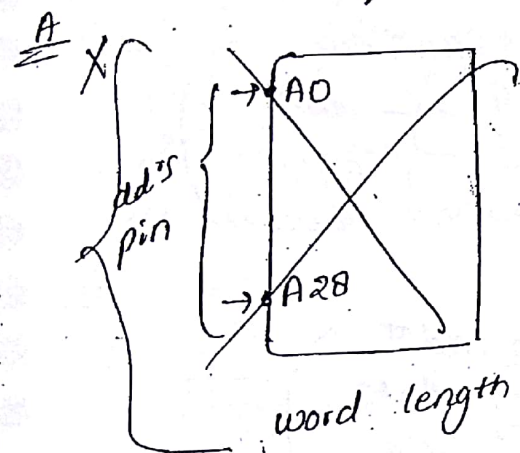 A
X
→ A0
add's
pin
→ A28
word length